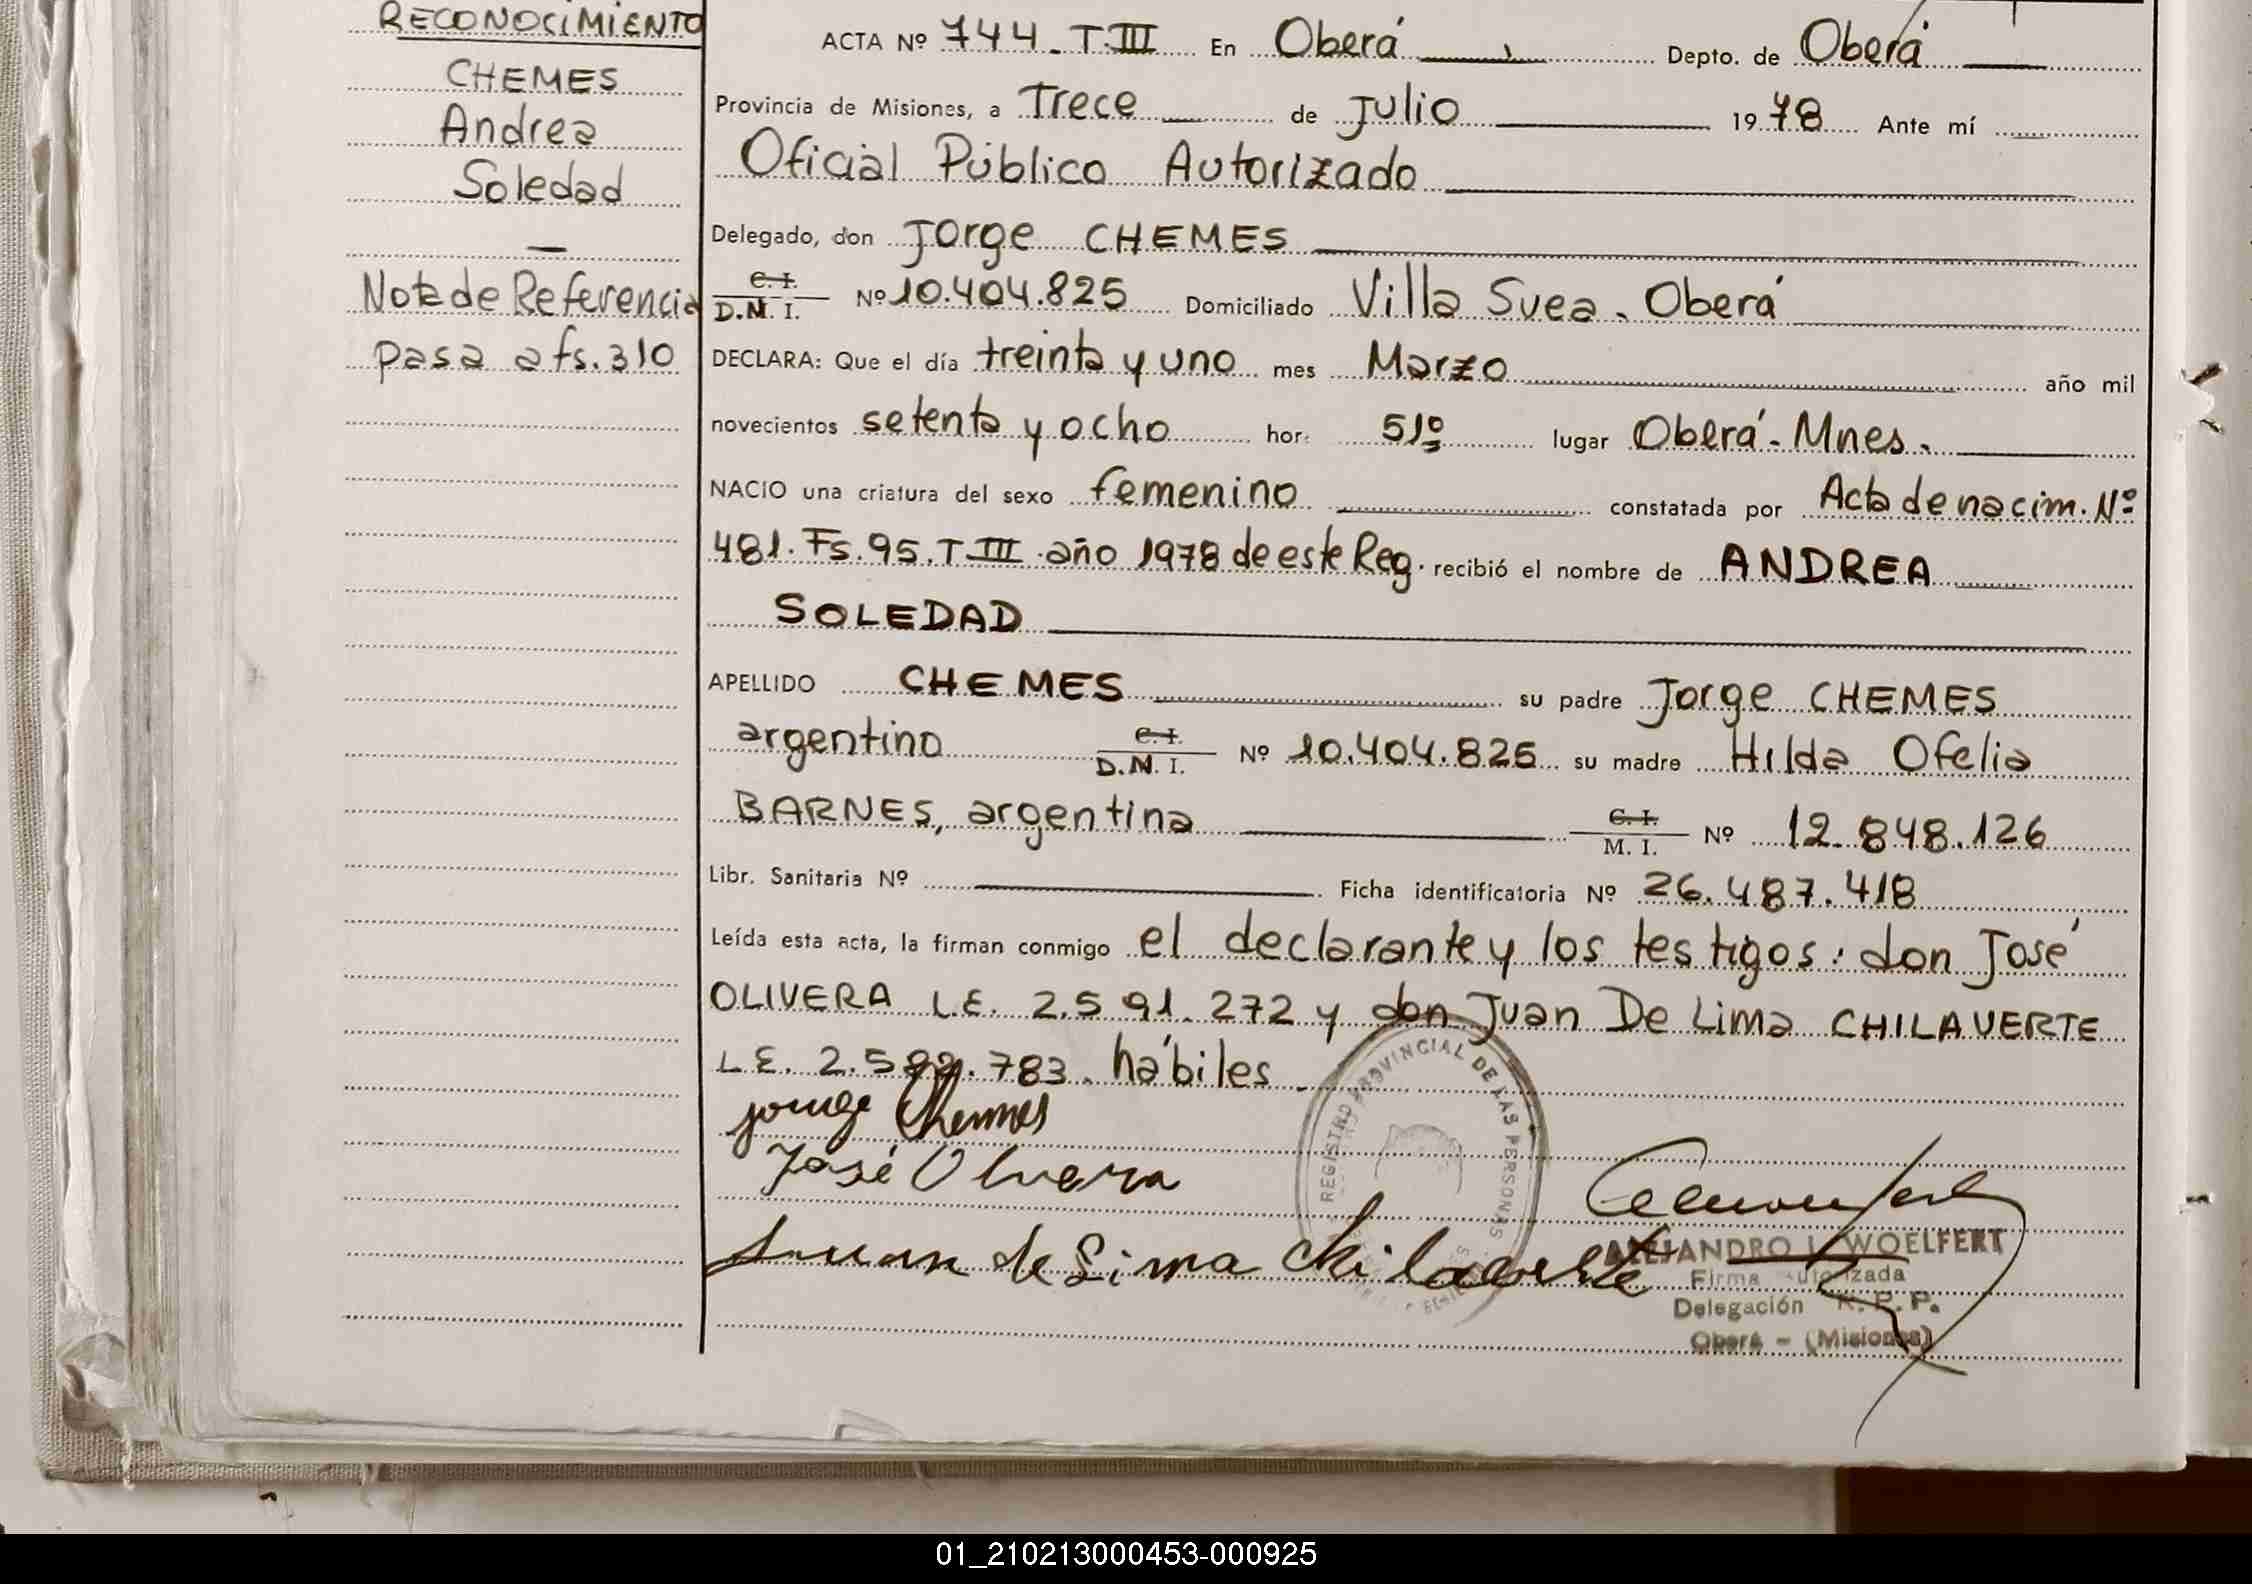 RECONOCIMIENTO
CHEMES
Andrea
Soledad
—
Nota de Referencia
pasa a fs. 310
ACTA Nº 744 - T. III En Oberá, Depto. de Oberá
Provincia de Misiones, a Trece de Julio 1978 Ante mí
Oficial Público Autorizado
Delegado, don Jorge CHEMES
C. I. D.N.I. Nº 10.404.825 Domiciliado Villa Svea. Oberá
DECLARA: Que el día treinta y uno mes Marzo año mil
novecientos setenta y ocho hor: lugar Oberá - Mnes.
NACIO una criatura del sexo femenino constatada por Acta de nacim. Nº
481. Fs. 95. T III año 1978 de este Reg. recibió el nombre de ANDREA
SOLEDAD
APELLIDO CHEMES su padre Jorge CHEMES
argentino C. I. D.N.I. Nº 10.404.825 su madre Hilda Ofelia
BARNES, argentina C. I. M. I. Nº 12.848.126
Libr. Sanitaria Nº Ficha identificatoria Nº 26.487.418
Leída esta acta, la firman conmigo el declarante y los testigos: don José
OLIVERA L.E. 2.591.272 y don Juan De Lima CHILAVERTE
L.E. hábiles
Jorge Chemes
José Olivera
Juan de Lima Chilaverte
REGISTRO PROVINCIAL DE LAS PERSONAS
ALEJANDRO L. WOELFERT
Firma Autorizada
Delegación R. P. P.
Oberá - (Misiones)
01_210213000453-000925